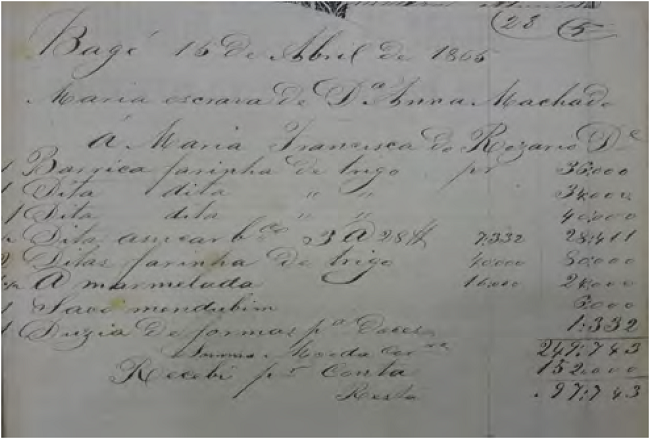 (28 (5
Bagé 15 de Abril de 1865
Maria escrava de D.ª Anna Machado
A Maria Francisca do Rozario D.e
1 Barrica farinha de trigo pr 36:000
1 Dita dita " " 34:000
1 Dita dita " " 40:000
Dita assucar b.co 3 @ 28 lb 7:332 28:411
2 Ditas farinha de trigo 40:000 80:000
@ marmelada 16:000 24:000
1 Saco mendubim 6:000
1 Duzia de formas p.a Doces 1:332
Summa Moeda Cor.te 249:743
Recebi p.r Conta 152:000
Resta 97:743